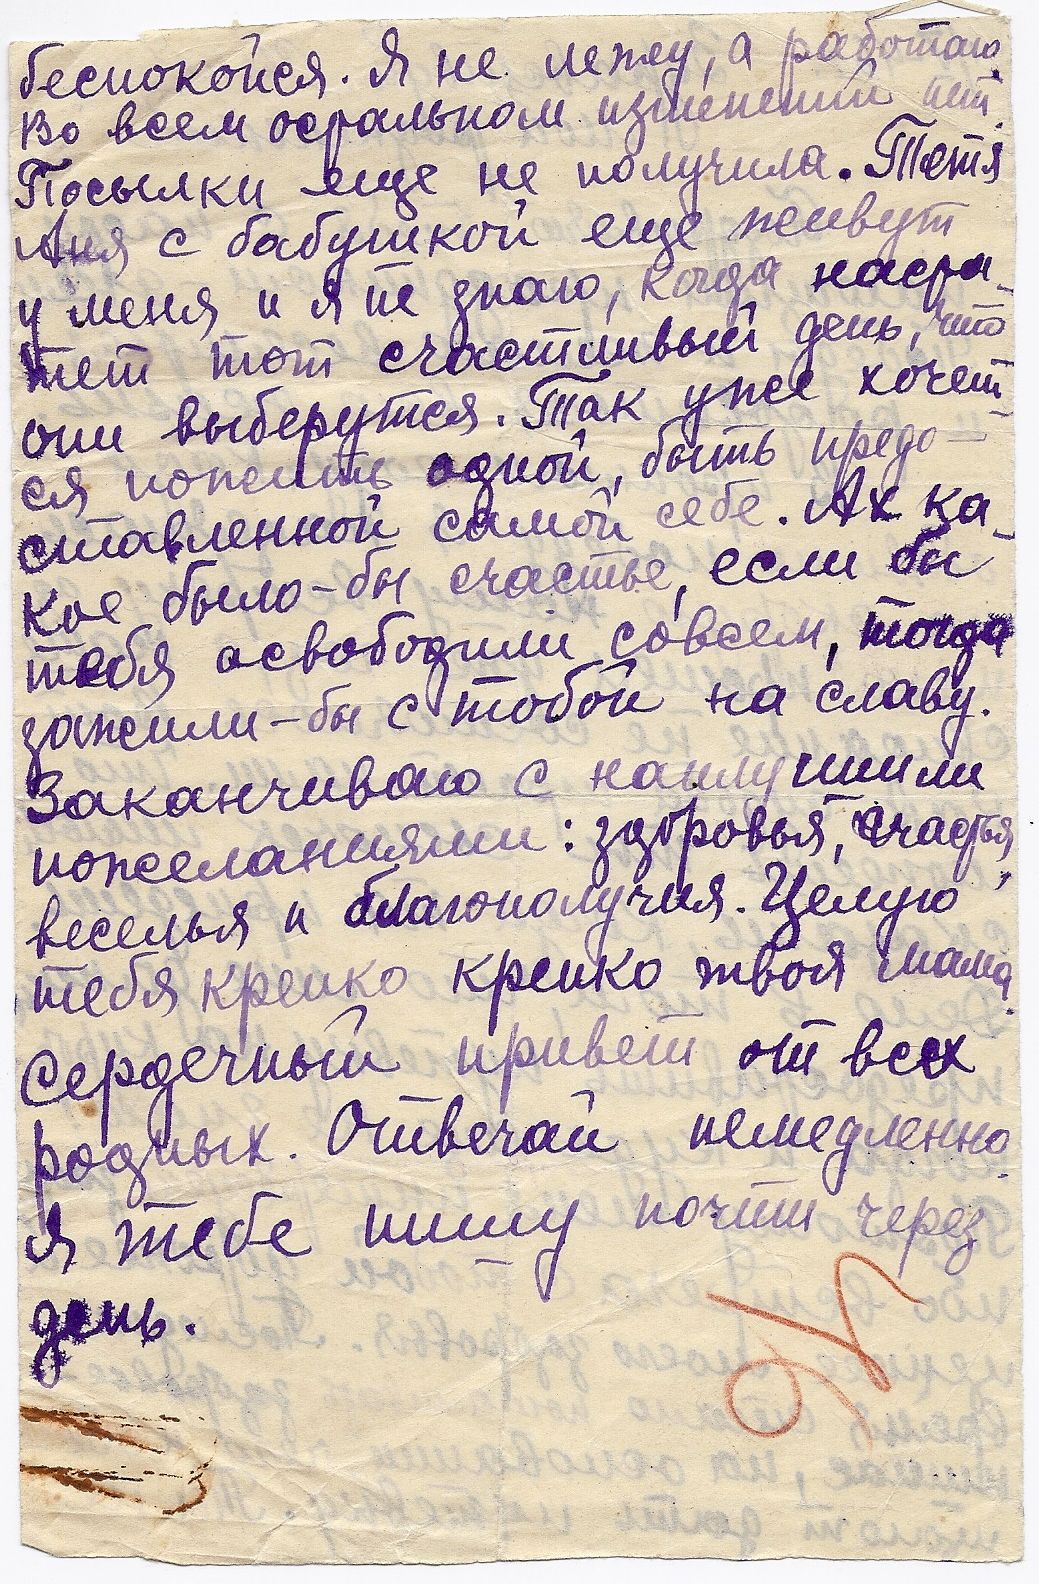 беспокойся. Я не лежу, а работаю.
Во всем остальном изменений нет.
Посылки еще не получила. Тетя
Аня с бабушкой еще живут
у меня и я не знаю, когда наста-
нет тот счастливый день, что
они выберутся. Так уже хочет-
ся пожить одной, быть предо-
ставленной самой себе. Ах ка-
кое было-бы счастье, если бы
тебя освободили совсем, тогда
зажили-бы с тобой на славу.
Заканчиваю с наилучшими
пожеланиями: здоровья, счастья,
веселья и благополучия. Целую
тебя крепко крепко твоя мама.
Сердечный привет от всех
родных. Отвечай немедленно.
Я тебе пишу почти через
день.